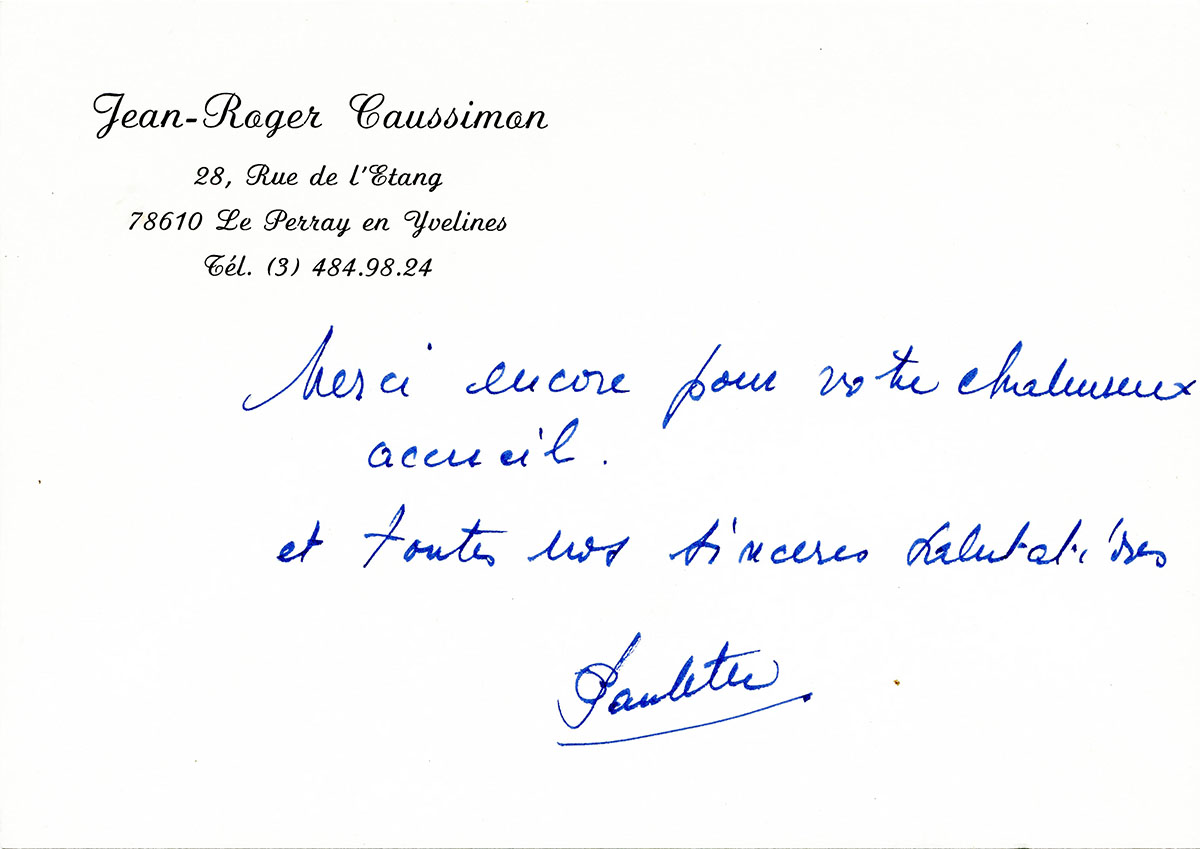 Jean-Roger Caussimon
28, Rue de l'Etang
78610 Le Perray en Yvelines
Tél. (3) 484.98.24
Merci encore pour votre chaleureux
accueil.
et toutes nos sincères salutations
Paulette